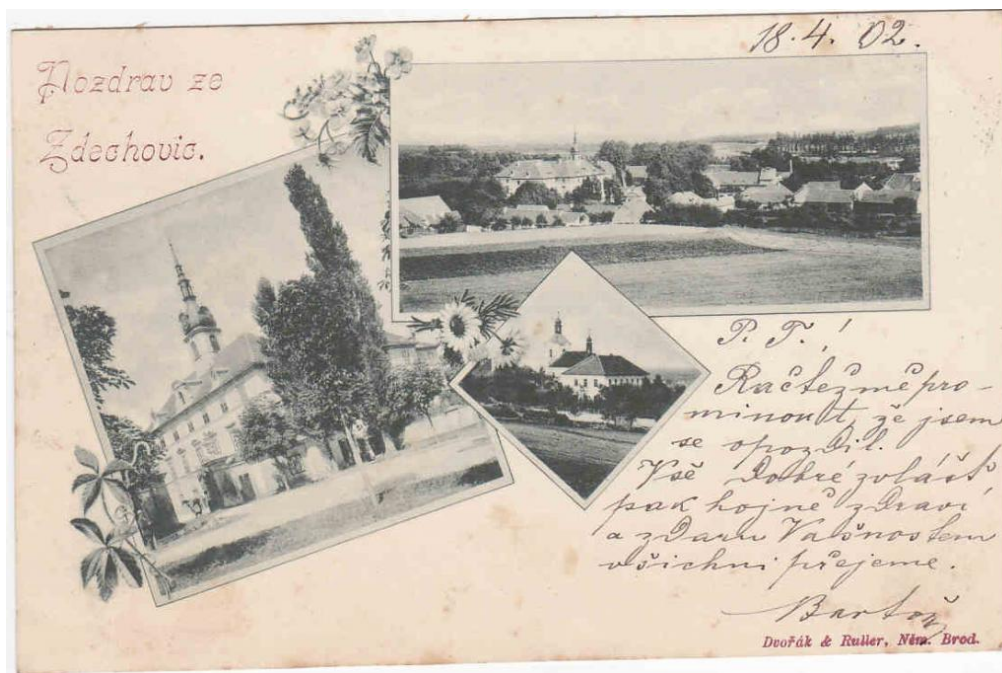 18.4. 02.
Pozdrav ze
Zdechovic.
P. T.!
Račtež mě pro-
minout, že jsem
se opozdil.
Vše dobré zvlášť
pak hojně zdraví
a zdaru Vašnostem
všichni přejeme.
Bartoš
Dvořák & Ruller, Něm. Brod.